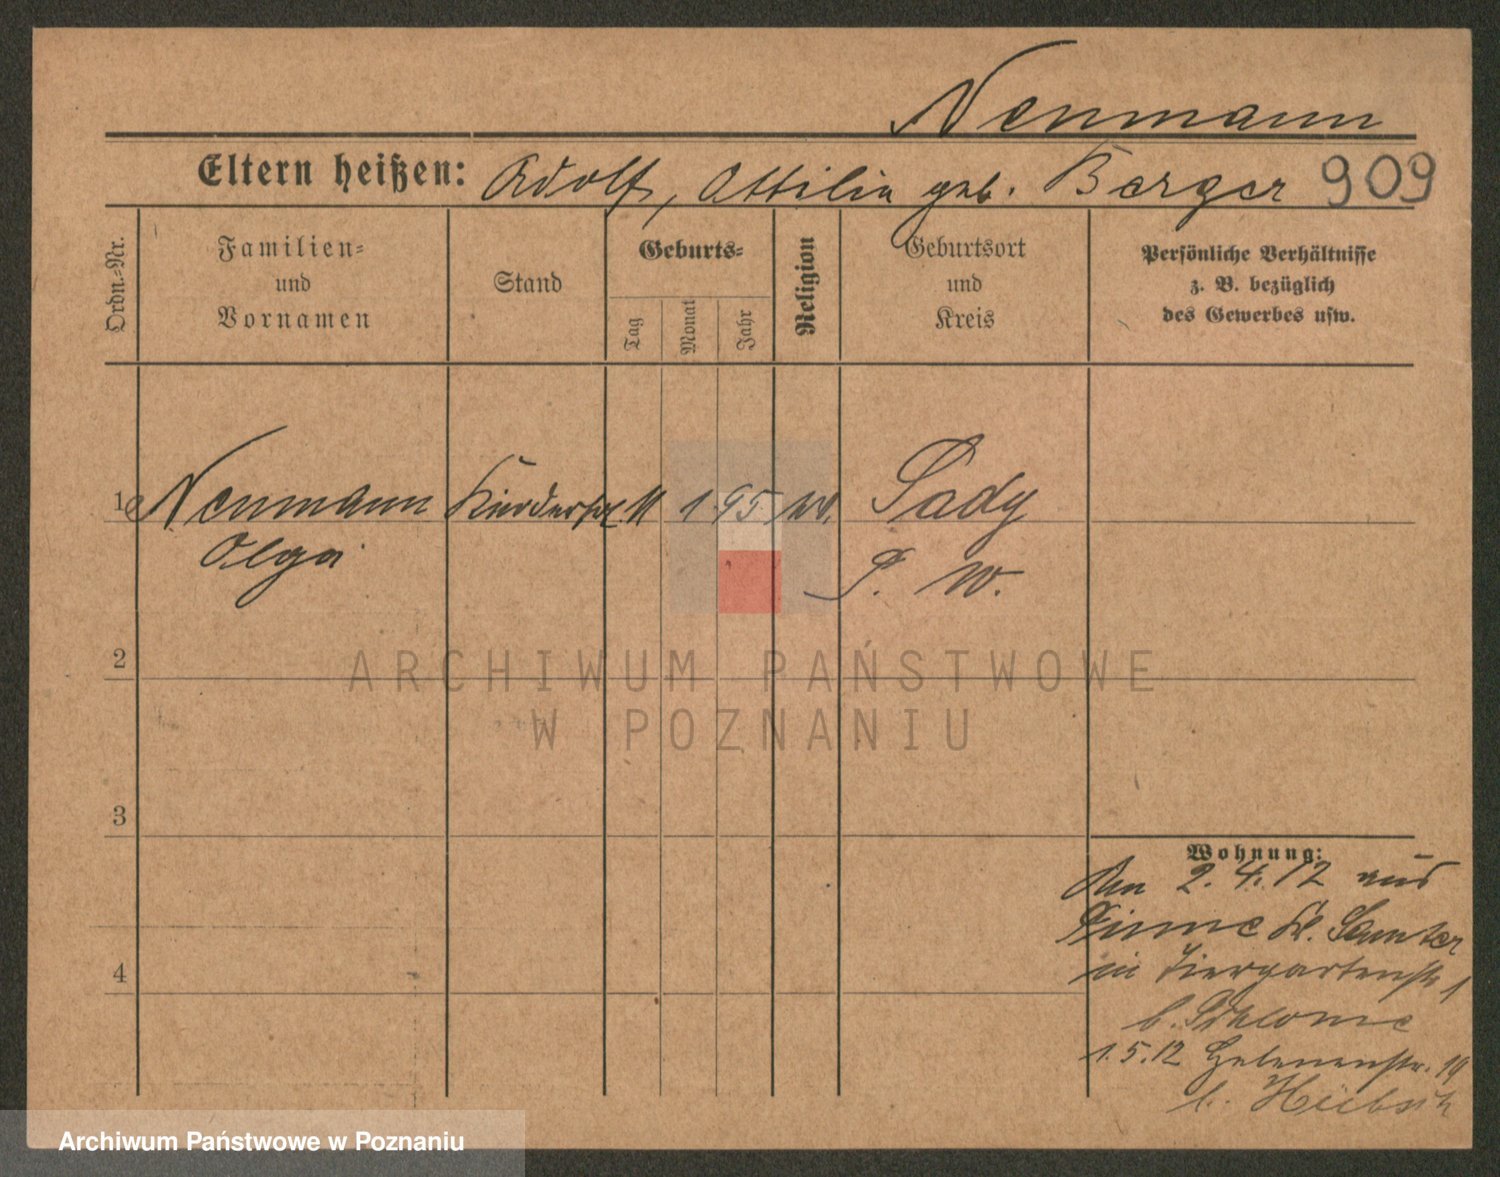 Neumann
Eltern heißen: Adolf, Ottilie geb. Berger 909
Ordn.-Nr.
Familien-
und
Vornamen
Stand
Geburts-
Tag
Monat
Jahr
Religion
Geburtsort
und
Kreis
Persönliche Verhältnisse
z. B. bezüglich
des Gewerbes usw.
1 Neumann 11 1 95 Sady
Olga P. W.
2
3
4
Wohnung:
Am 2.4.12 aus
Pinne Kr. Samter
in Tiergartenstr 1
b.
1.5.12. Helenenstr. 19
b. Hübsch
ARCHIWUM PAŃSTWOWE
W POZNANIU
Archiwum Państwowe w Poznaniu